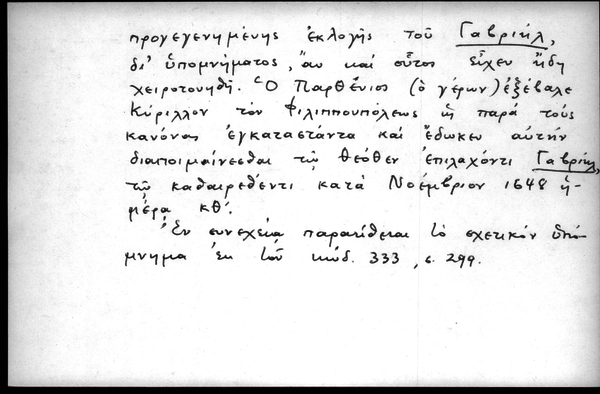 προγεγενημένης ἐκλογῆς τοῦ Γαβριήλ,
δι' ὑπομνήματος, ἂν καὶ οὗτος εἶχεν ἤδη
χειροτονηθῆ. Ὁ Παρθένιος (ὁ γέρων) ἐξέβαλε
Κύριλλον τὸν Φιλιππουπόλεως ὡς παρὰ τοὺς
κανόνας ἐγκαταστάντα καὶ ἔδωκεν αὐτὴν
διαποιμαίνεσθαι τῷ θεόθεν ἐπιλαχόντι Γαβριήλ,
τῷ καθαιρεθέντι κατὰ Νοέμβριον 1648 ἡ-
μέρᾳ κθ'.
Ἐν συνεχείᾳ παρατίθεται τὸ σχετικὸν ὑπό-
μνημα ἐκ τοῦ κώδ. 333, σ. 299.